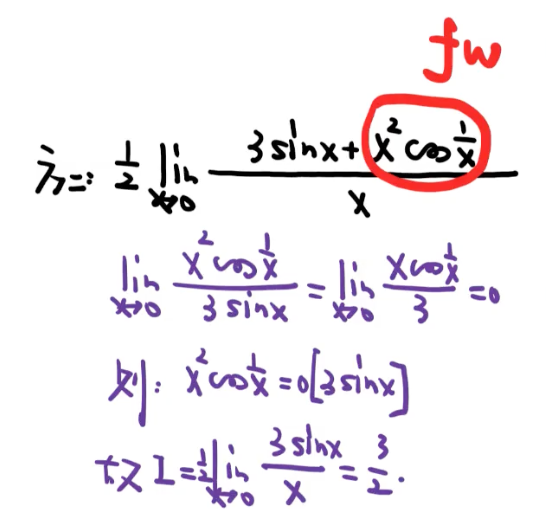 fw
方法二: \frac{1}{2} \lim_{x→0} \frac{3sinx + x^2 cos\frac{1}{x}}{x}
\lim_{x→0} \frac{x^2 cos\frac{1}{x}}{3sinx} = \lim_{x→0} \frac{x cos\frac{1}{x}}{3} = 0
则: x^2 cos\frac{1}{x} = 0[3sinx]
故 I = \frac{1}{2} \lim_{x→0} \frac{3sinx}{x} = \frac{3}{2}.